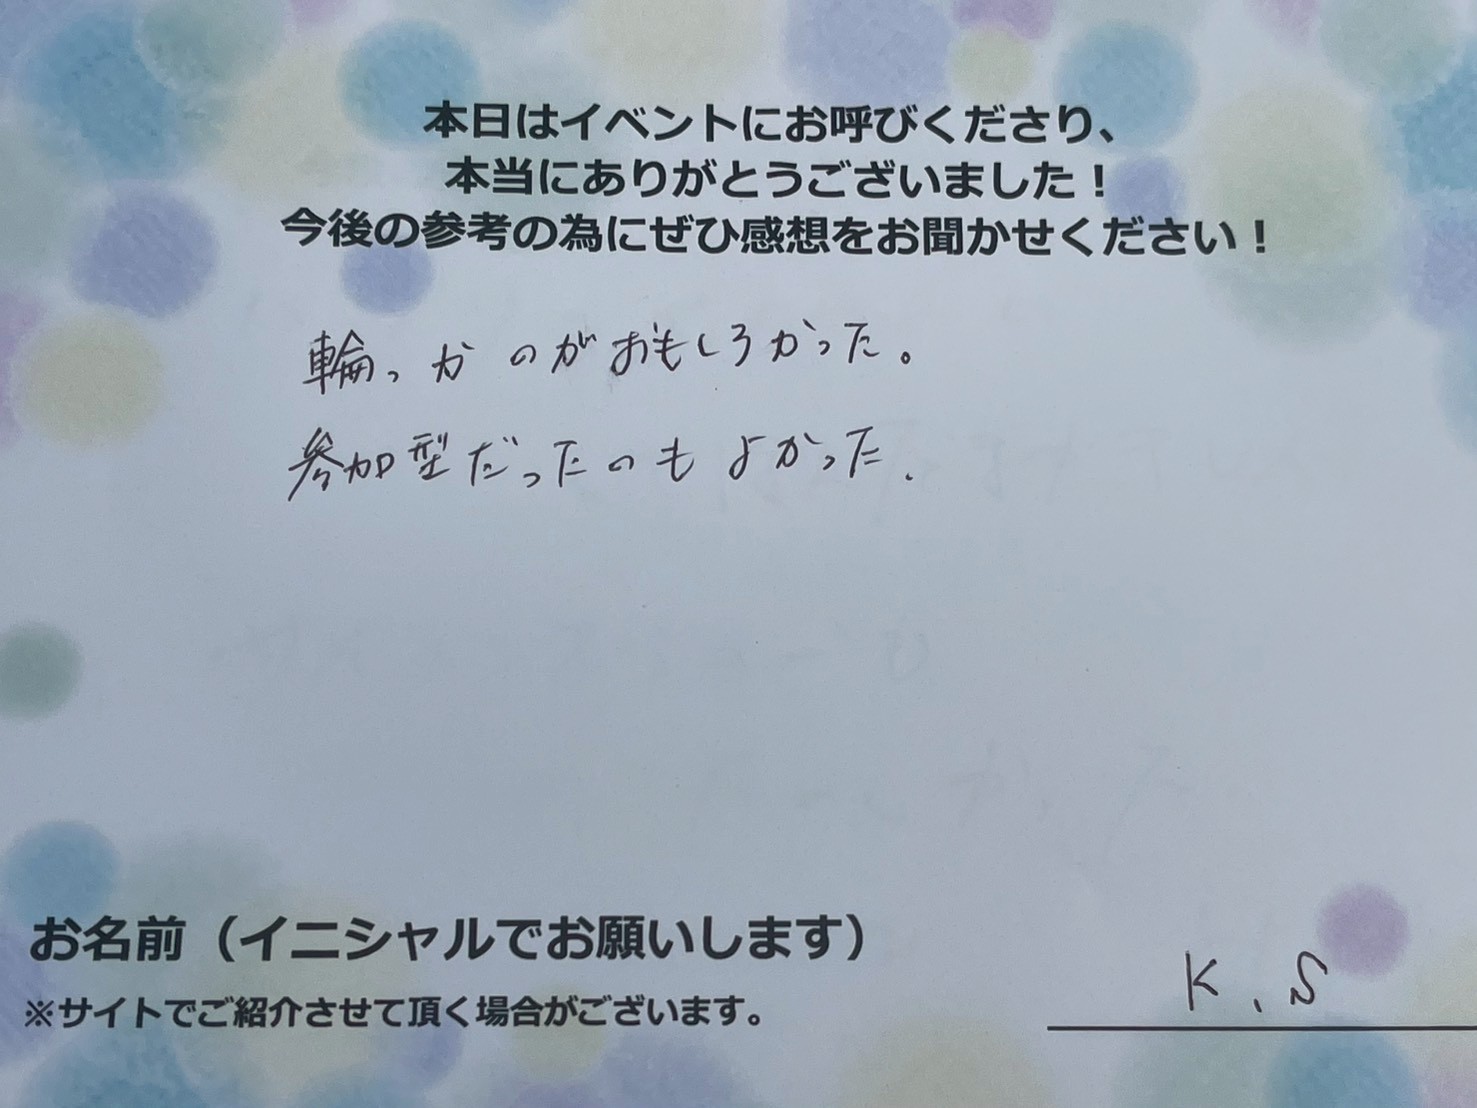 本日はイベントにお呼びくださり、
本当にありがとうございました！
今後の参考の為にぜひ感想をお聞かせください！
輪っかのがおもしろかった。
参加型だったのもよかった.
お名前（イニシャルでお願いします）
※サイトでご紹介させて頂く場合がございます。
K.S